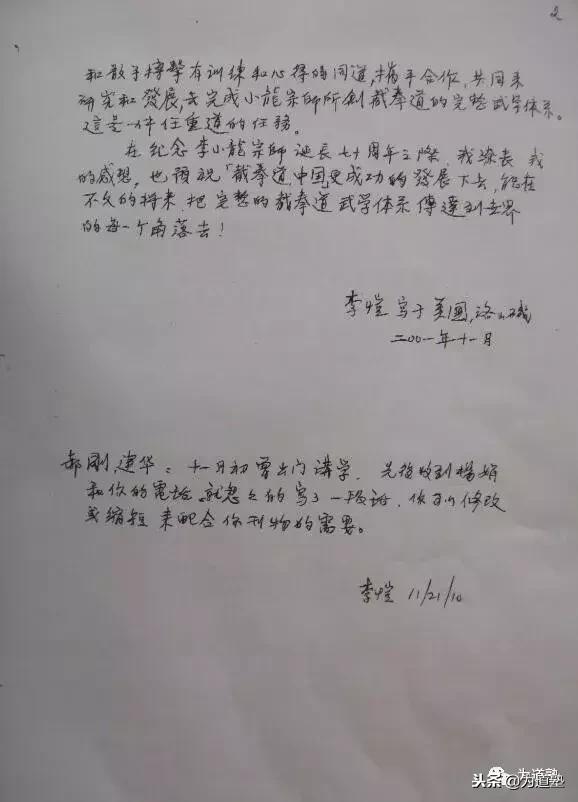 2
和散手搏擊有訓練和心得的同道,携手合作,共同来
研究和發展,去完成小龍宗師所創截拳道的完整武学体系。
這是一件任重道的任務。
在紀念李小龍宗師诞辰七十周年之際,我 表我
的感想,也預祝截拳道中国更成功的發展下去,能在
不久的将来把完整的截拳道武学体系傳達到世界
的每一个角落去!
李恺写于美國,洛山磯
二00一年十一月
郝刚,建华:十一月初要出门講学.先後收到楊娟
和你的電话,就忽忽的写了一段话.你可以修改
或缩短来配合你刊物的需要。
李恺 11/21/10
为道塾
头条@为道塾